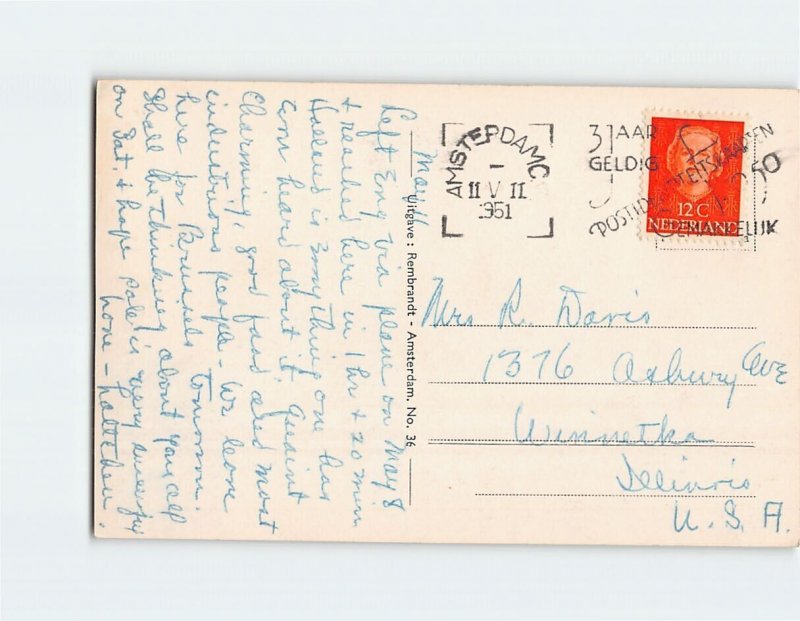 May 11
Left Eng. via plane on May 8
& reached here in 1 hr & 20 min
Holland is everything one has
ever heard about it. Quaint
Charming, good food and most
industrious people - We leave
here for Brussels tomorrow.
Shall be thinking about you all
on Sat. & hope sale is very
love -
Uitgave: Rembrandt - Amsterdam. No. 36
AMSTERDAM C
11 V 11
1951
3 JAAR
GELDIG
50
12 C
NEDERLAND
Mrs R. Davis
1376 Asbury Ave
Winnetka
Illinois
U. S. A.